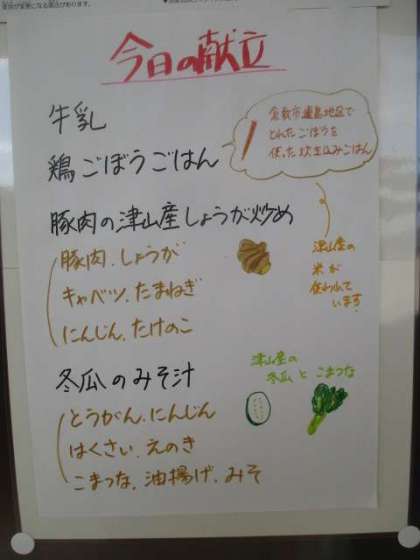 今日の献立
牛乳
鶏ごぼうごはん
倉敷市連島地区で
とれたごぼうを
使った炊き込みごはん
豚肉の津山産しょうが炒め
豚肉、しょうが
キャベツ、たまねぎ
にんじん、たけのこ
津山産の
米が
使われて
います!
冬瓜のみそ汁
津山産の
冬瓜とこまつな
とうがん、にんじん
はくさい、えのき
こまつな、油揚げ、みそ